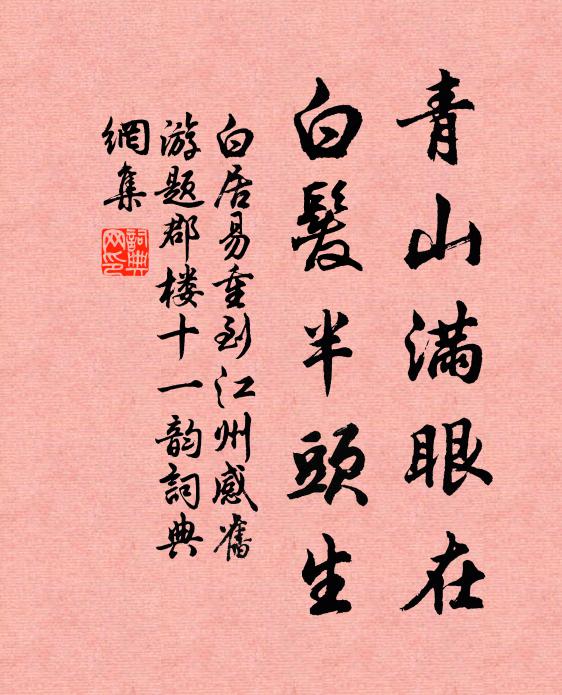 青山滿眼在
白髮半頭生
白居易重到江州感舊
游题郡楼十一韵詞典
網集
詞典
网印